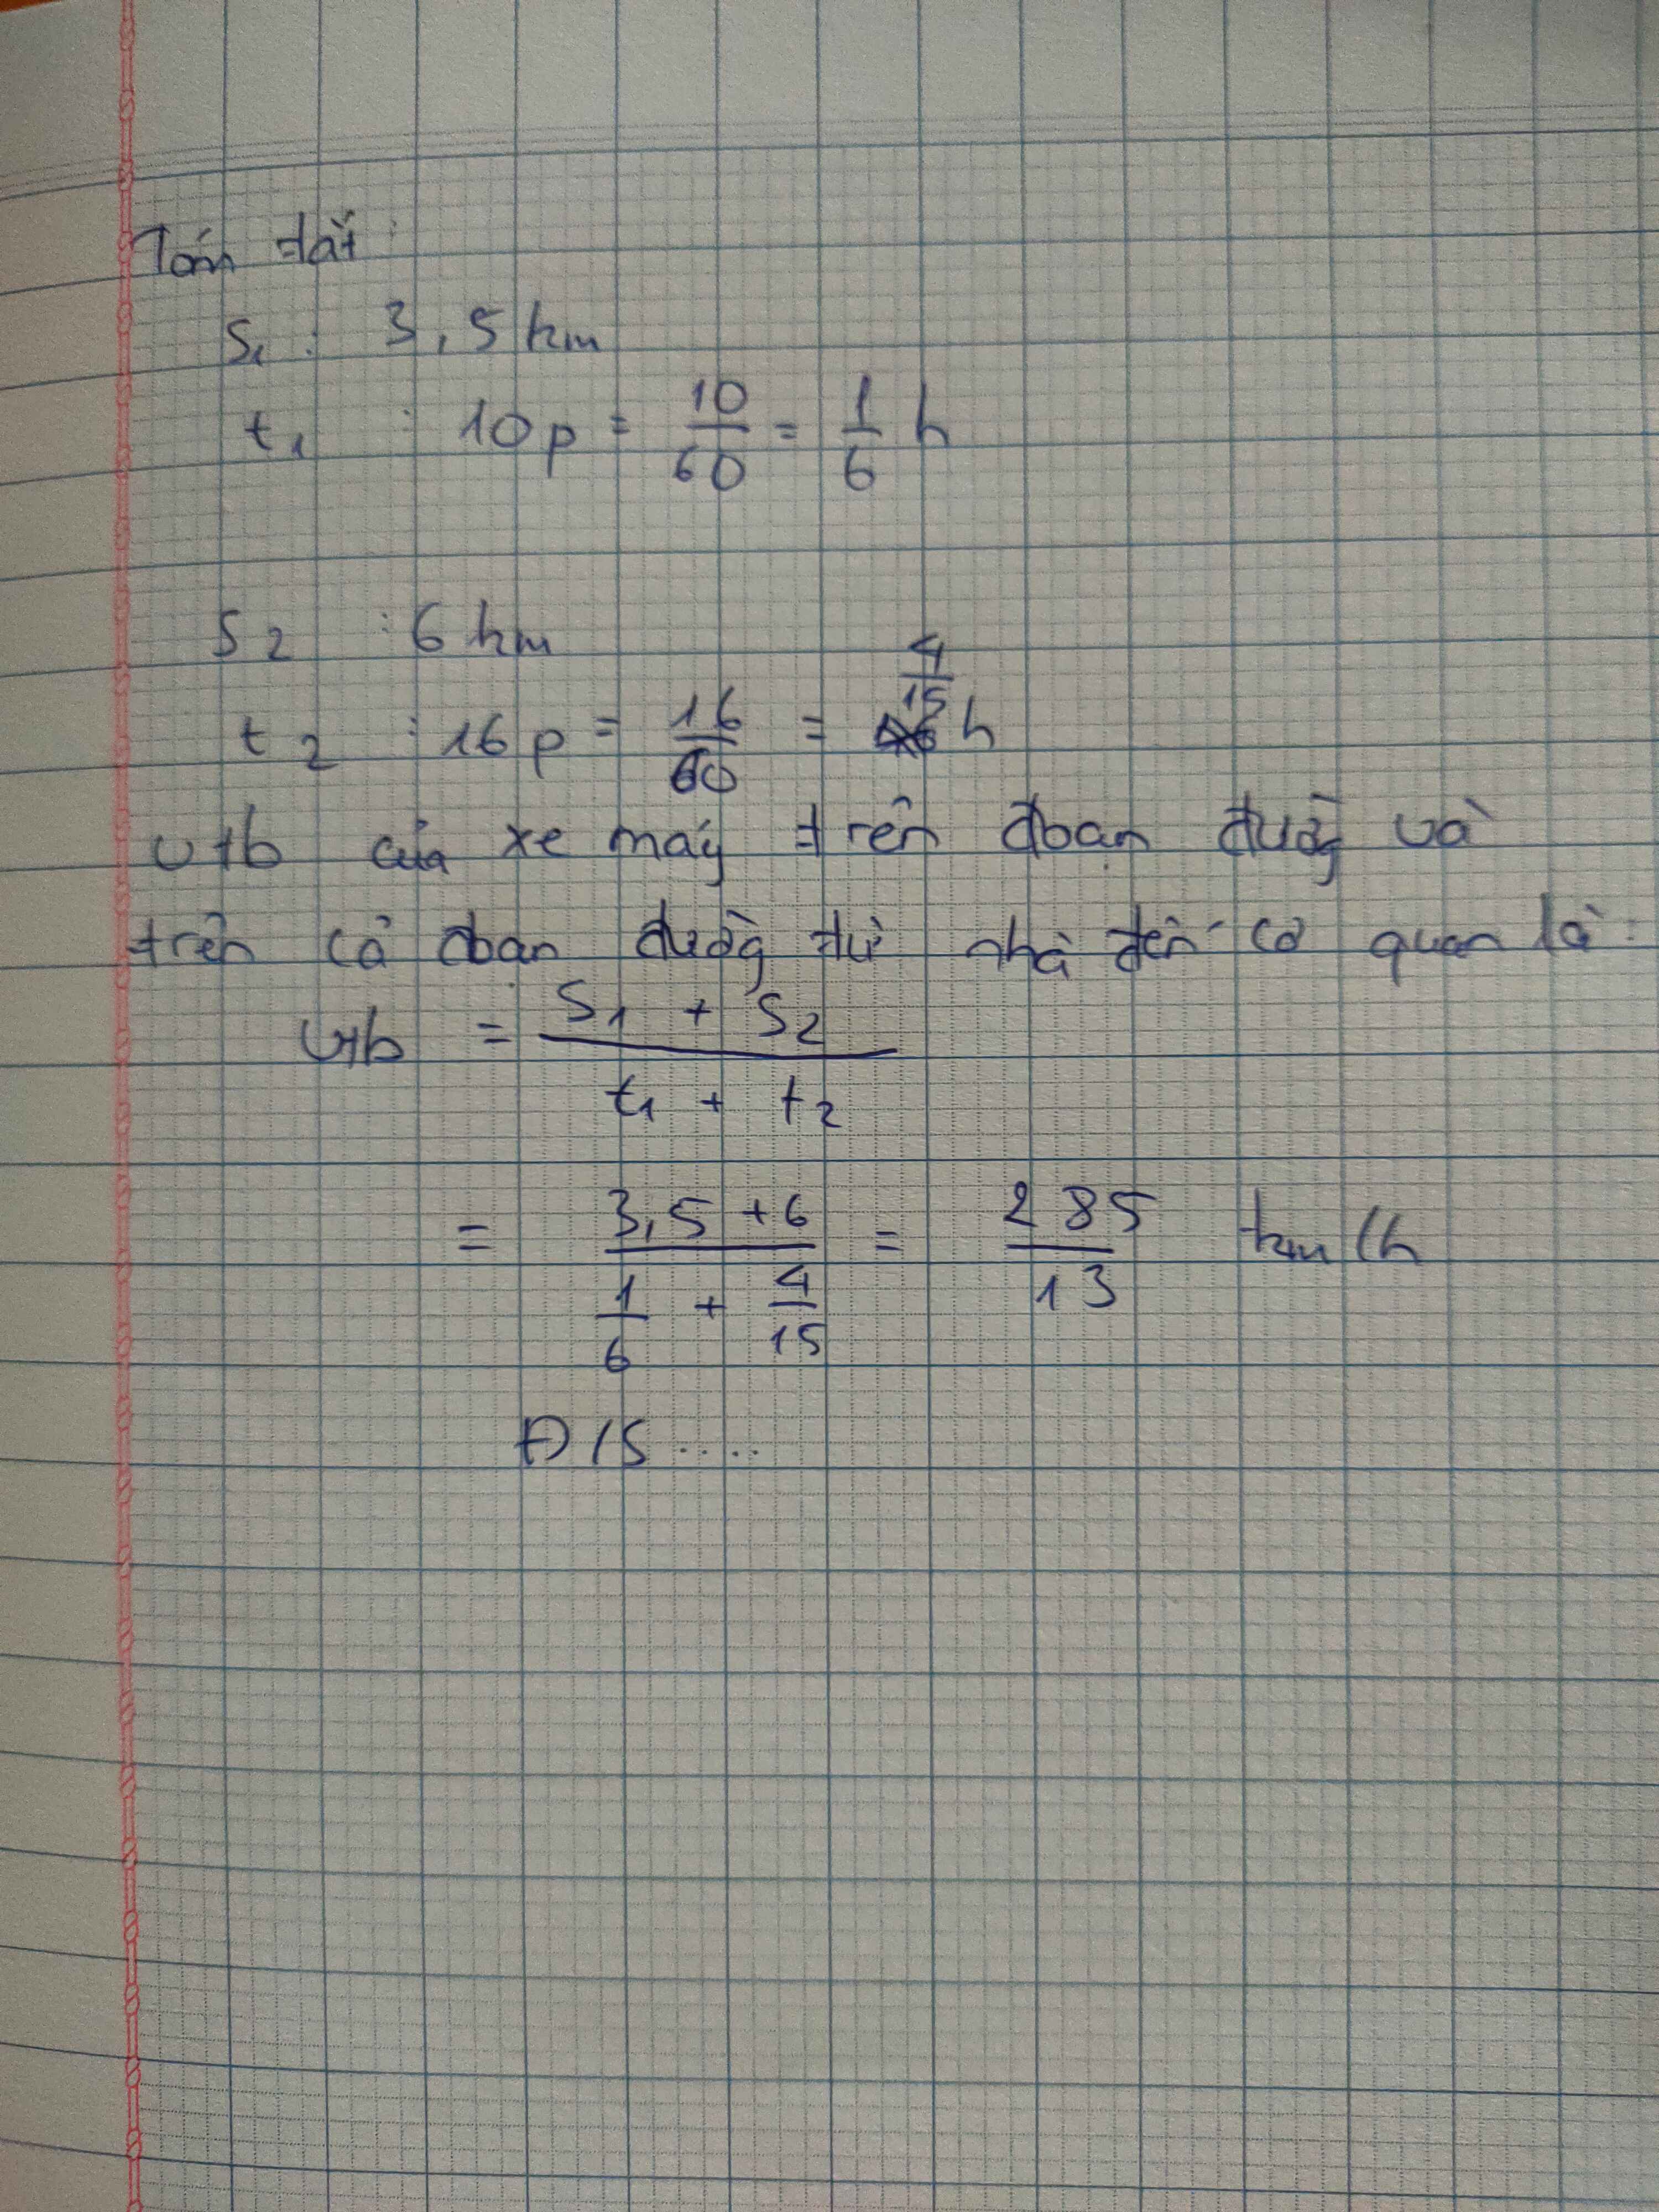 Tóm tắt:
S1 : 3,5 km
t1 : 10p = 10/60 = 1/6 h
S2 : 6 km
t2 : 16p = 16/60 = 4/15 h
vtb của xe máy trên đoạn đường và
trên cả đoạn đường từ nhà đến cơ quan là:
vtb = S1 + S2 / t1 + t2
= 3,5 + 6 / 1/6 + 4/15 = 285/13 km/h
Đ/S ....